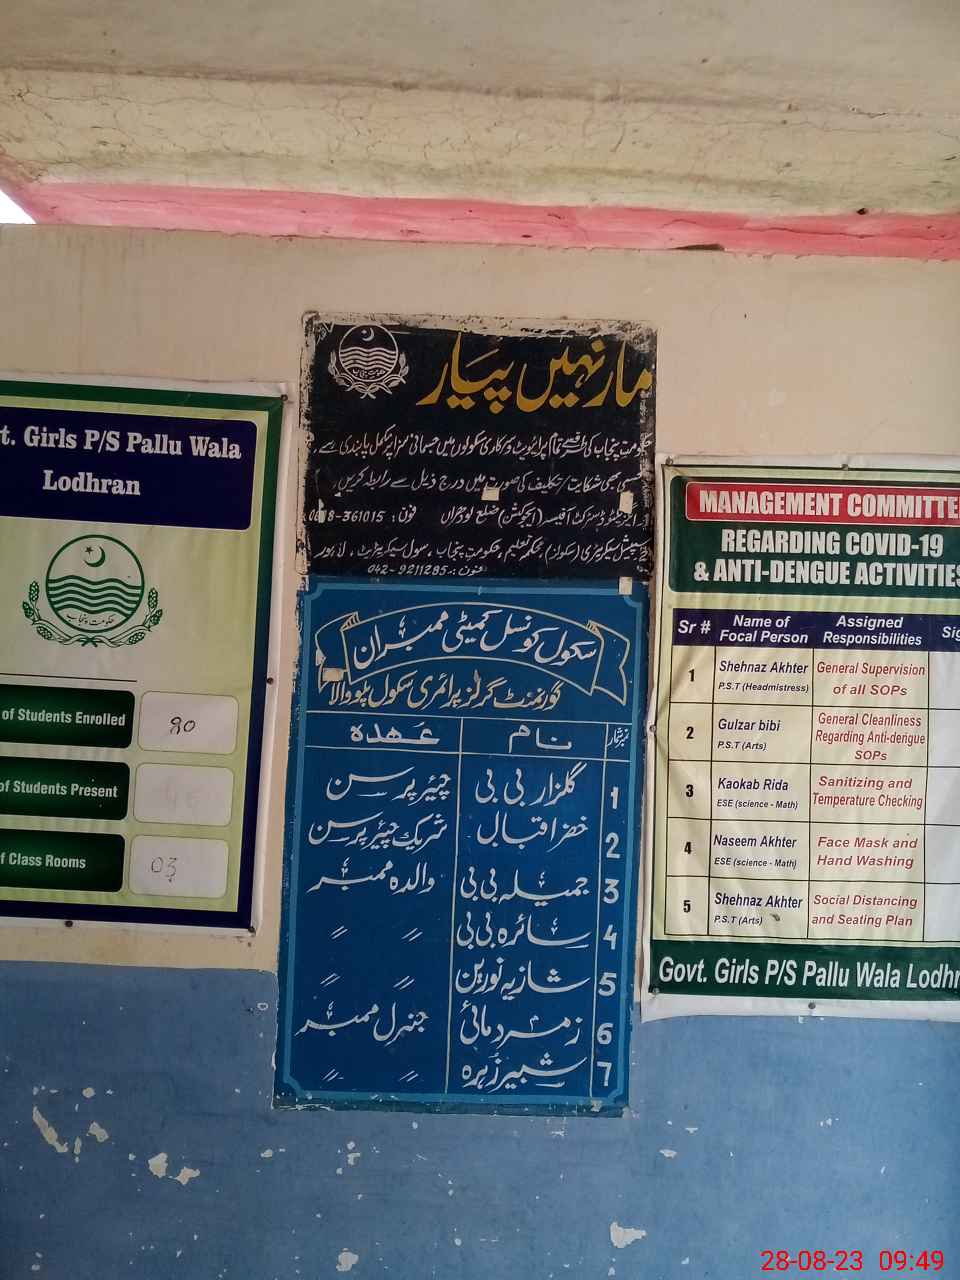 t. Girls P/S Pallu Wala
Lodhran
حکومت پنجاب
of Students Enrolled
90
of Students Present
of Class Rooms
03
مار نہیں پیار
حکومت پنجاب کی طرف سے تمام پرائیویٹ و سرکاری سکولوں میں جسمانی سزا پر مکمل پابندی ہے۔
کسی بھی شکایت / تکلیف کی صورت میں درج ذیل سے رابطہ کریں۔
ایگزیکٹو ڈسٹرکٹ آفیسر (ایجوکیشن) ضلع لودھراں فون: 0608-361015
سپیشل سیکریٹری (سکولز) محکمہ تعلیم، حکومت پنجاب، سول سیکریٹریٹ، لاہور
فون: 042-9211285
سکول کونسل کمیٹی ممبران
گورنمنٹ گرلز پرائمری سکول پلو والا
نمبر شمار نام عہدہ
1 گلزار بی بی چیئر پرسن
2 خضر اقبال شریک چیئر پرسن
3 جمیلہ بی بی والدہ ممبر
4 سائرہ بی بی 〃 〃
5 شازیہ نورین 〃 〃
6 زمرد مائی جنرل ممبر
7 شبیر زہرہ 〃 〃
MANAGEMENT COMMITTEE
REGARDING COVID-19
& ANTI-DENGUE ACTIVITIES
Sr # Name of Focal Person Assigned Responsibilities Sig
1 Shehnaz Akhter P.S.T (Headmistress) General Supervision of all SOPs
2 Gulzar bibi P.S.T (Arts) General Cleanliness Regarding Anti-dengue SOPs
3 Kaokab Rida ESE (science - Math) Sanitizing and Temperature Checking
4 Naseem Akhter ESE (science - Math) Face Mask and Hand Washing
5 Shehnaz Akhter P.S.T (Arts) Social Distancing and Seating Plan
Govt. Girls P/S Pallu Wala Lodhr
28-08-23 09:49